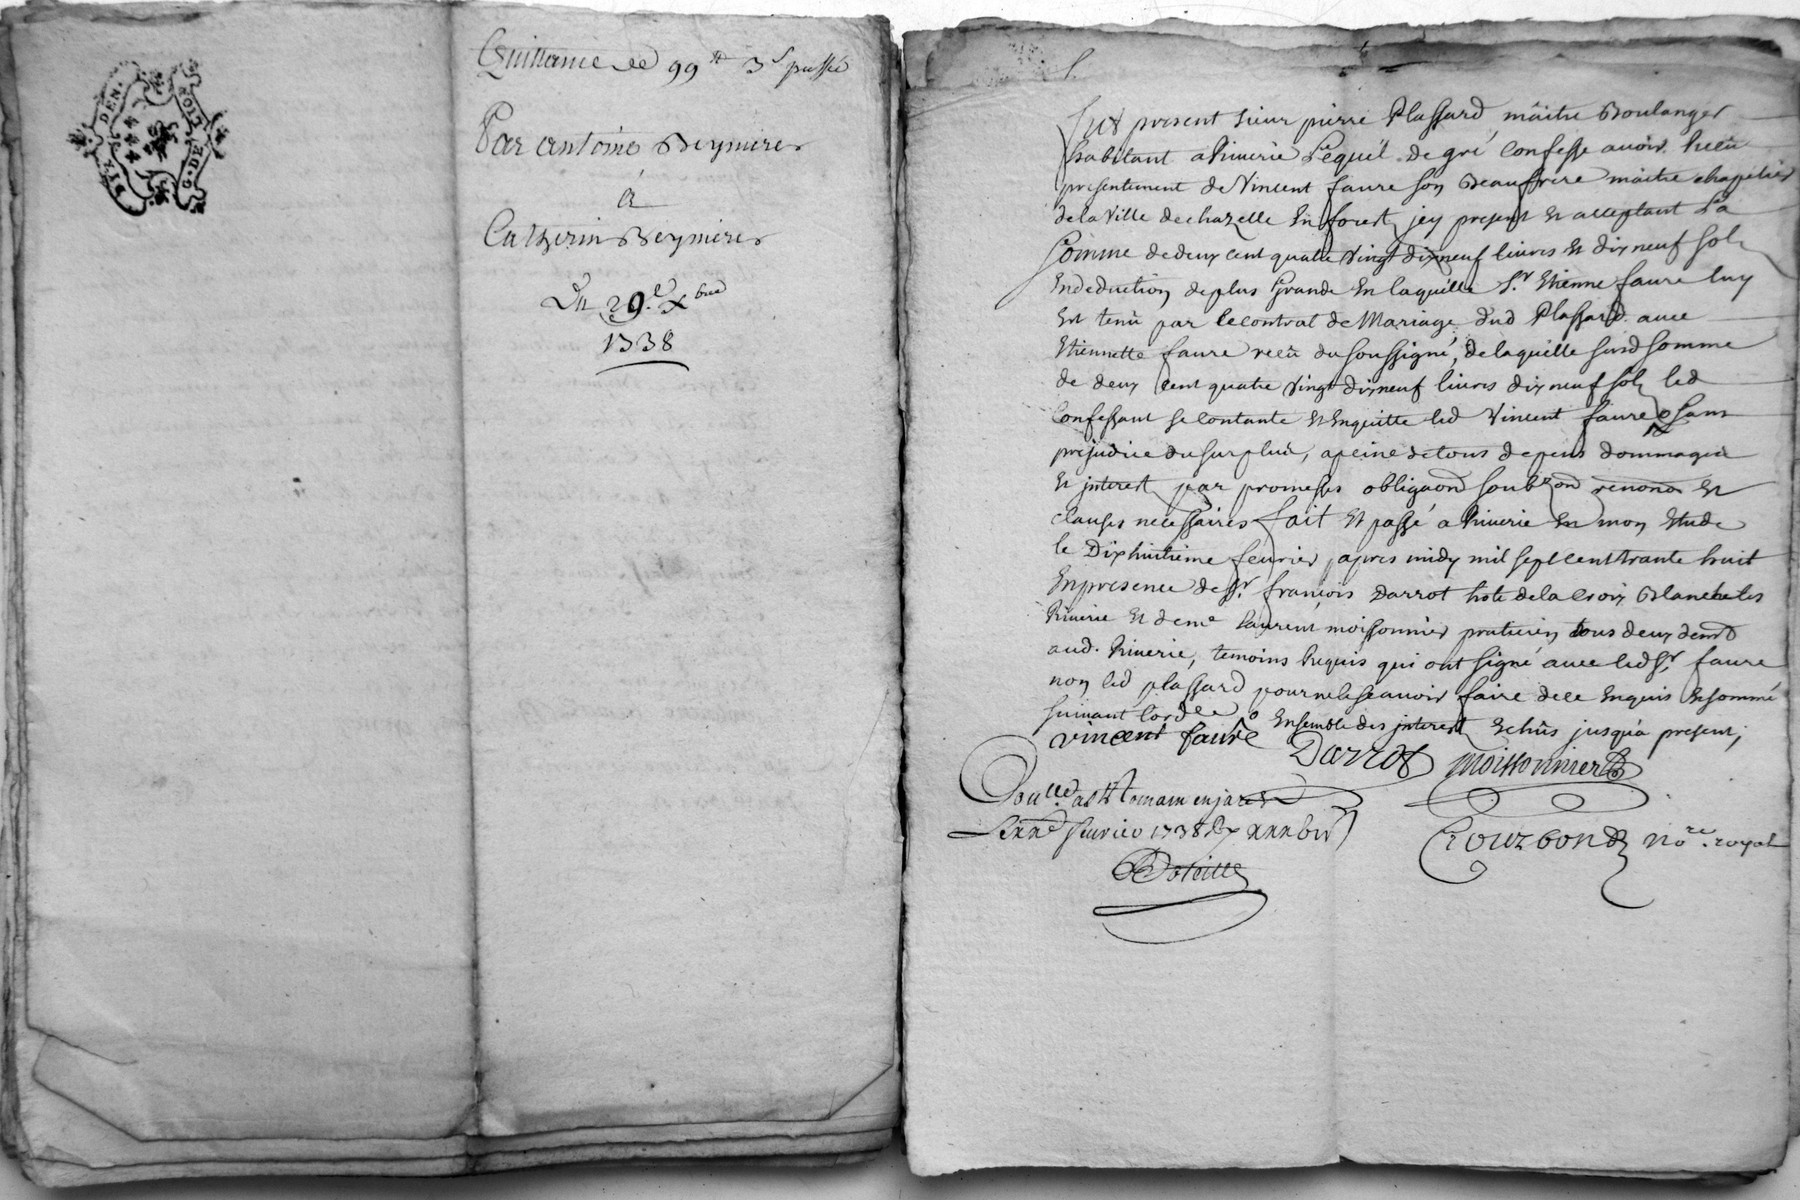 SIX DEN.
G. DE LION
Quittance de 99 ₶ 3 s passée
Par antoine Reymier
à
Catherin Reymier
Du 29.e Xbre
1738
fut present sieur pierre Plassard maitre Boulanger
habitant a Riverie Lequel de gré confesse avoir Reçu
presentement de Vincent faure son Beaufrere maitre chapelier
de la Ville de chazelle En forest jcy present Et acceptant La
Somme de deux cent quatre vingt dix neuf livres Et dix neuf sols
En deduction de plus Grande En laquelle Sr. Etienne faure luy
Est tenu par le contrat de Mariage dud Plassard avec
Etiennette faure reçu du soussigné, de laquelle susd somme
de deux cent quatre vingt dix neuf livres dix neuf sols led
Confessant se contante Et Enquitte led Vincent faure o sans
prejudice du surplus, a peine de tous depens dommages
Et jnterest par promesses obligaon soubzon renonon Et
clauses necessaires fait Et passé a Riverie En mon Etude
le Dixhuitieme fevrier apres midy mil sept cent trante huit
En presence de Sr. françois Darrot hote de la Croix Blanche
Riverie Et de me laurent moissonnier praticien tous deux demt
aud. Riverie, temoins Requis qui ont signé avec led Sr faure
non led plassard pour ne le sçavoir faire de ce Enquis Et sommé
suivant lordce o Ensemble des jnterest Echus jusqu'a present,
vincent faure Darrot moissonnier
Coulle a St Romain en jarest
fevrier 1738
Crouzon nore. royal